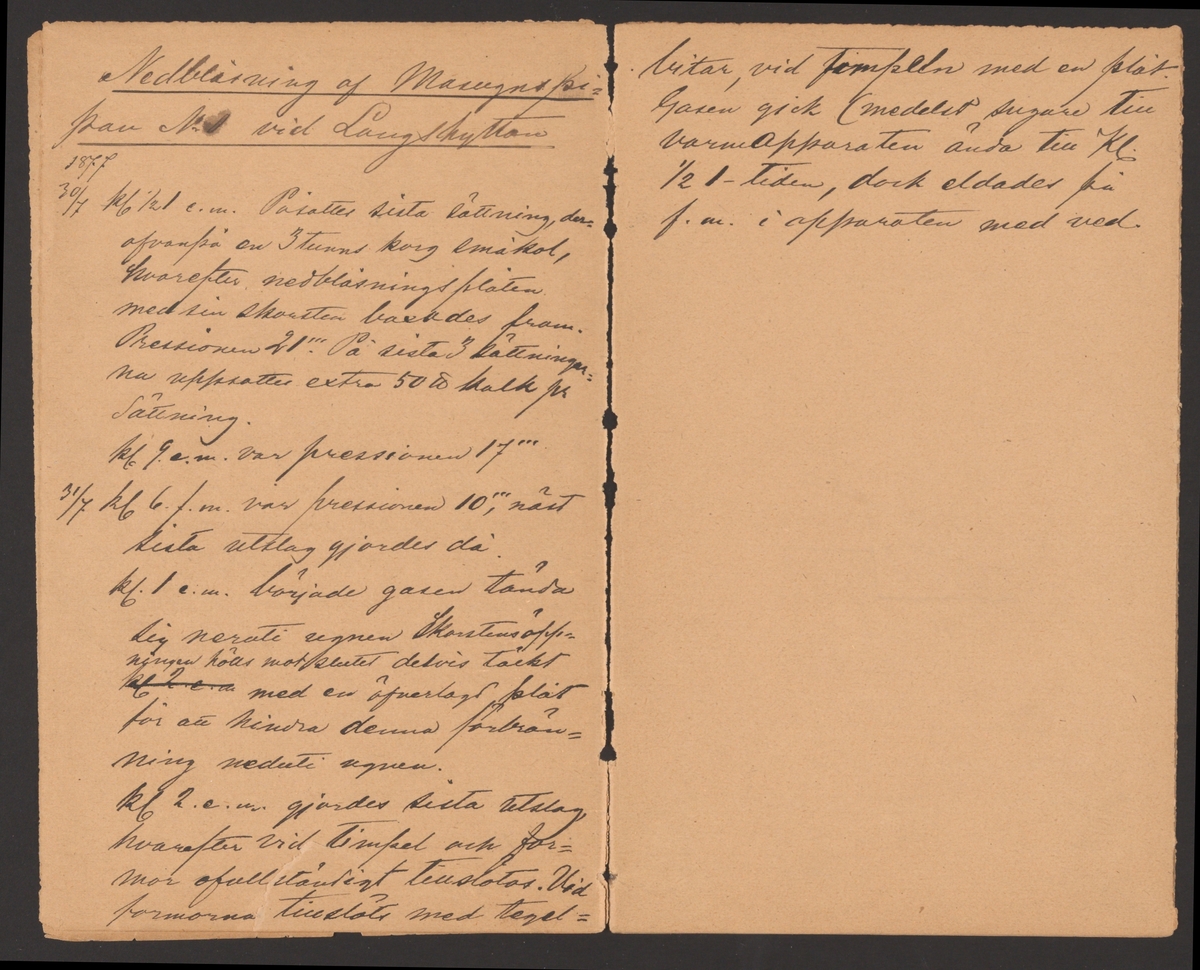 Nedblåsning af Masugnspi=
pan No 1 vid Långshyttan
1877
30/7 kl 1/2 1 e.m. Påsattes sista sättning, der=
ofvanpå en 3 tunns korg småkol,
hvarefter nedblåsningsplåten
med sin skorsten backades fram.
Pressionen 21'''. På sista 3 sättningar=
na uppsattes extra 50 ℔ kalk pr
sättning.
kl 9 e.m. var pressionen 17'''
31/7 kl 6 f.m. var pressionen 10''', näst
sista utslag gjordes då.
kl. 1 e.m. började gasen tända
sig neruti ugnen Skorstensöpp=
ningen hölls mot slutet delvis täckt
kl 2 e.m med en öfverlagd plåt
för att hindra denna förbrän=
ning neduti ugnen.
kl 2 e.m. gjordes sista utslag,
hvarefter vid timpel och for=
mor ofullständigt tillslötos. Vid
formorna tillslöts med tegel=
bitar, vid timpeln med en plåt.
Gasen gick (medelst sugare till
varmapparaten ända till Kl.
1/2 1-tiden, dock eldades på
f.m. i apparaten med ved.